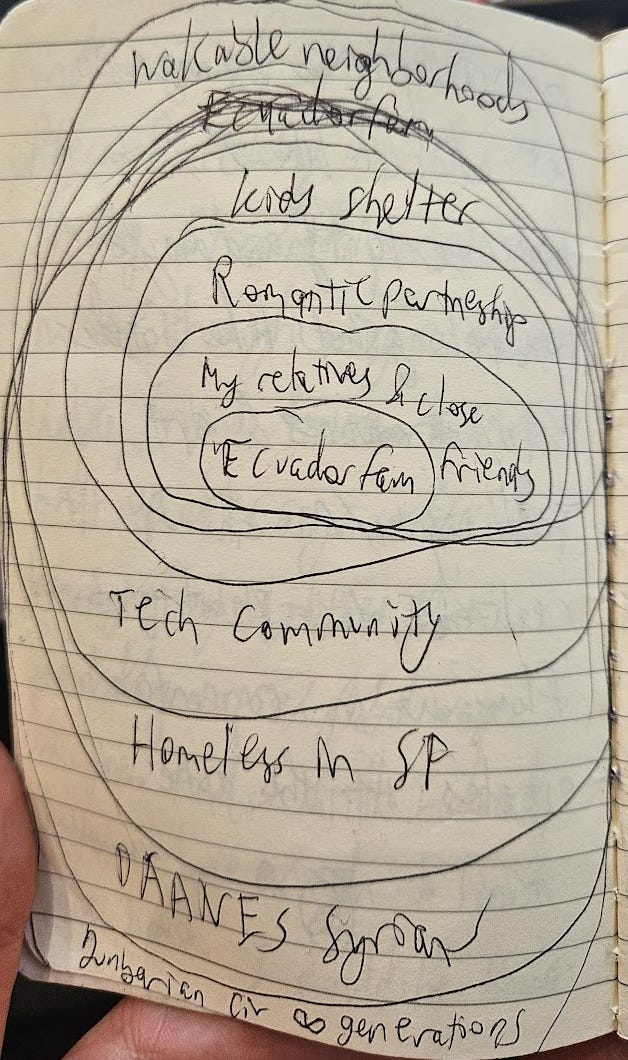 walkable neighborhoods
Ecuador fam
kids shelter
Romantic partneship
My relatives & close
friends
Ecuador fam
Tech Community
Homeless in SP
DAANES Syrian
Dunbarian cir ∞ generations